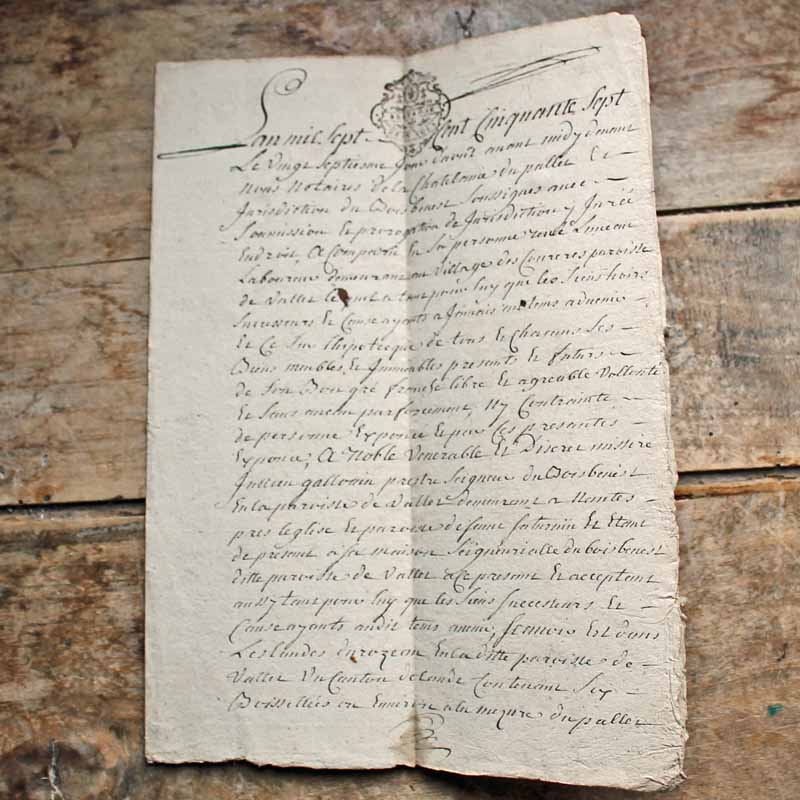 L'an mil Sept Cent Cinquante Sept
Le vingt Septiesme Jour d'avril avant midy devant
Nous Notaires de la Chatelanie du pallet Et
Jurisdiction du Boisbenest Soussignés avec
Soumission Et prorogation de Jurisdiction y Jurée
Endroit, A Comparu En Sa personne rené Limeau
Laboureur demeurant au village des Couères paroisse
de Vallet lequel a tant pour luy que les Siens hoirs
Successeurs Et Cause ayants a Jamais au tems advenir
Et Ce Sur l'hipoteque de tous Et Chacuns Ses
Biens meubles Et Immeubles presents Et futurs
de Son Bon gré franche libre Et agreable Vollonté
Et Sans aucun par forcement, ny Contrainte
de personne Exponcé Et par Ces presantes
Exponce, A Noble Venerable Et Discret missire
Jullien gallouin prestre Seigneur du Boisbenest
En la paroisse de Vallet demeurant a Nantes
pres leglise Et paroisse de Saint Saturnin Et Etant
de présent a Sa maison Seigneurialle du boisbenest
ditte paroisse de Vallet a Ce present Et acceptant
aussy tant pour luy que les Siens Successeurs Et
Cause ayants audit tems avenir, Scavoir Est dans
Les landes du rozeau En la ditte paroisse de
Vallet Un Canton de lande Contenant Six
Boissellées ou Environ a la mezure du pallet